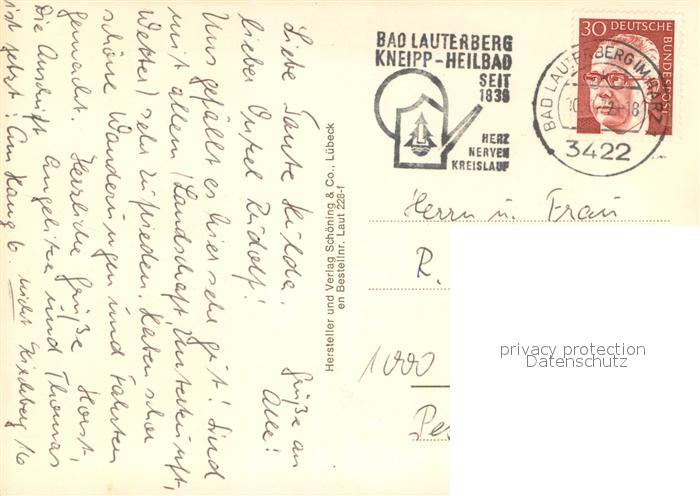 Liebe Tante Hilda,
lieber Onkel Rudolf!
Uns gefällt es hier sehr gut! Sind
mit allem (Landschaft, Unterkunft,
Wetter) sehr zufrieden. Haben schon
schöne Wanderungen und Fahrten
gemacht. Herzliche Grüße Horst,
Die Anschrift Angelika und Thomas
ist jetzt: Am Hang 6. nicht 16
Grüße an
Alle!
Hersteller und Verlag Schöning & Co., Lübeck
en Bestellnr. Laut 228-f
BAD LAUTERBERG
KNEIPP-HEILBAD
SEIT
1839
HERZ
NERVEN
KREISLAUF
30 DEUTSCHE
BUNDESPOST
BAD LAUTERBERG IM HARZ
3422
Herrn u. Frau
R.
1000
privacy protection
Datenschutz